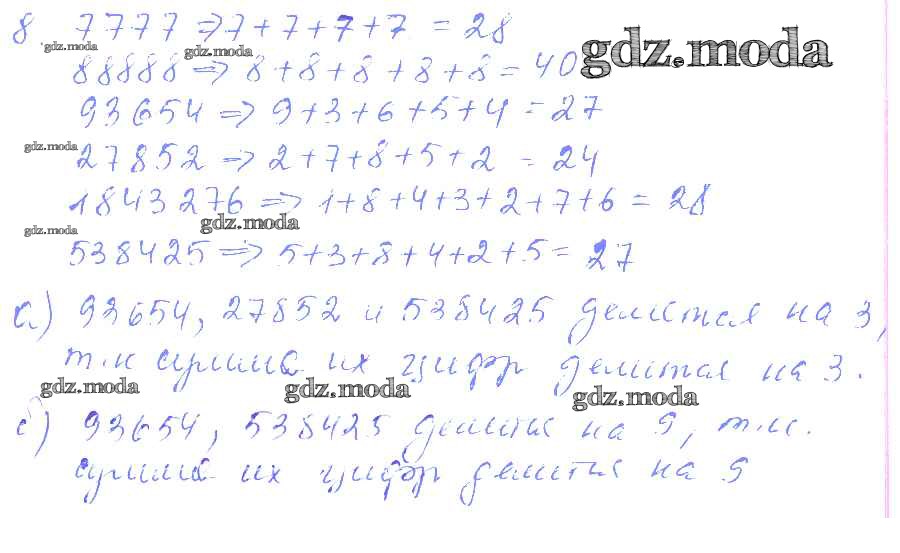 8 7777 => 7+7+7+7 = 28
88888 => 8+8+8+8+8 = 40
93654 => 9+3+6+5+4 = 27
27852 => 2+7+8+5+2 = 24
1843276 => 1+8+4+3+2+7+6 = 28
538425 => 5+3+8+4+2+5 = 27
а) 93654, 27852 и 538425 делится на 3,
т.к сумма их цифр делится на 3.
б) 93654, 538425 делится на 9, т.к.
сумма их цифр делится на 9
gdz.moda
gdz.moda
gdz.moda
gdz.moda
gdz.moda
gdz.moda
gdz.moda
gdz.moda
gdz.moda